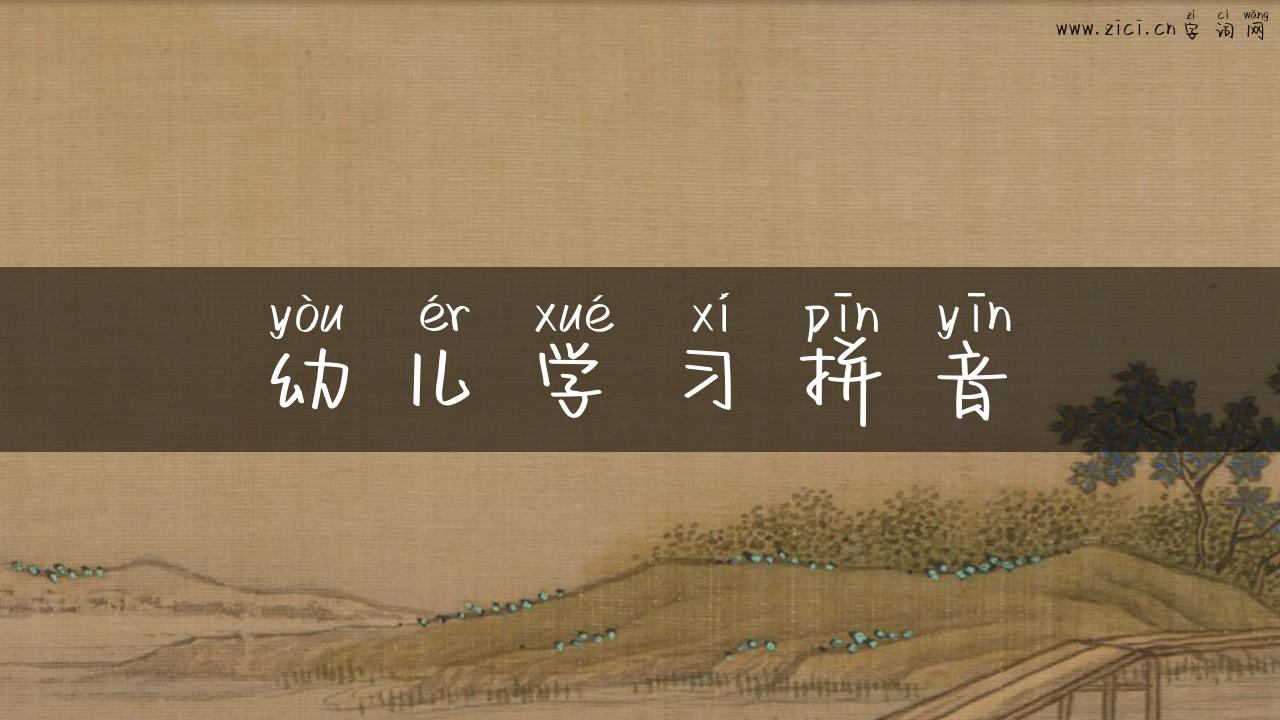 zì cí wǎng
www.zici.cn 字 词 网
yòu ér xué xí pīn yīn
幼 儿 学 习 拼 音